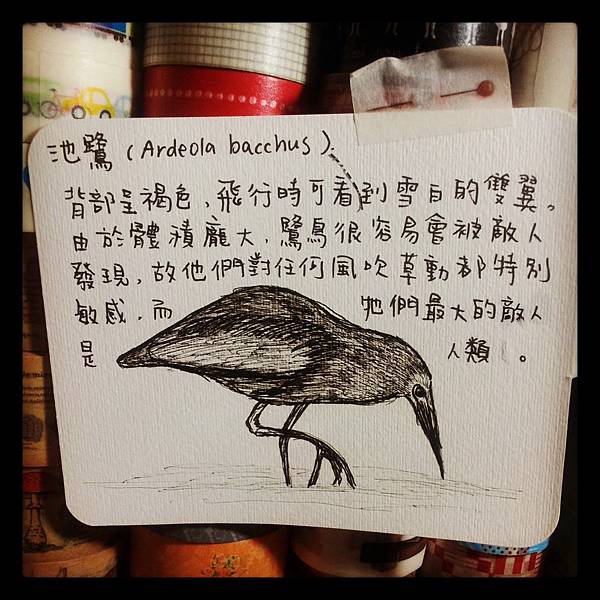 池鷺 (Ardeola bacchus).
背部呈褐色，飛行時可看到雪白的雙翼。
由於體積龐大，鷺鳥很容易會被敵人
發現，故他們對任何風吹草動都特別
敏感，而牠們最大的敵人
是人類。